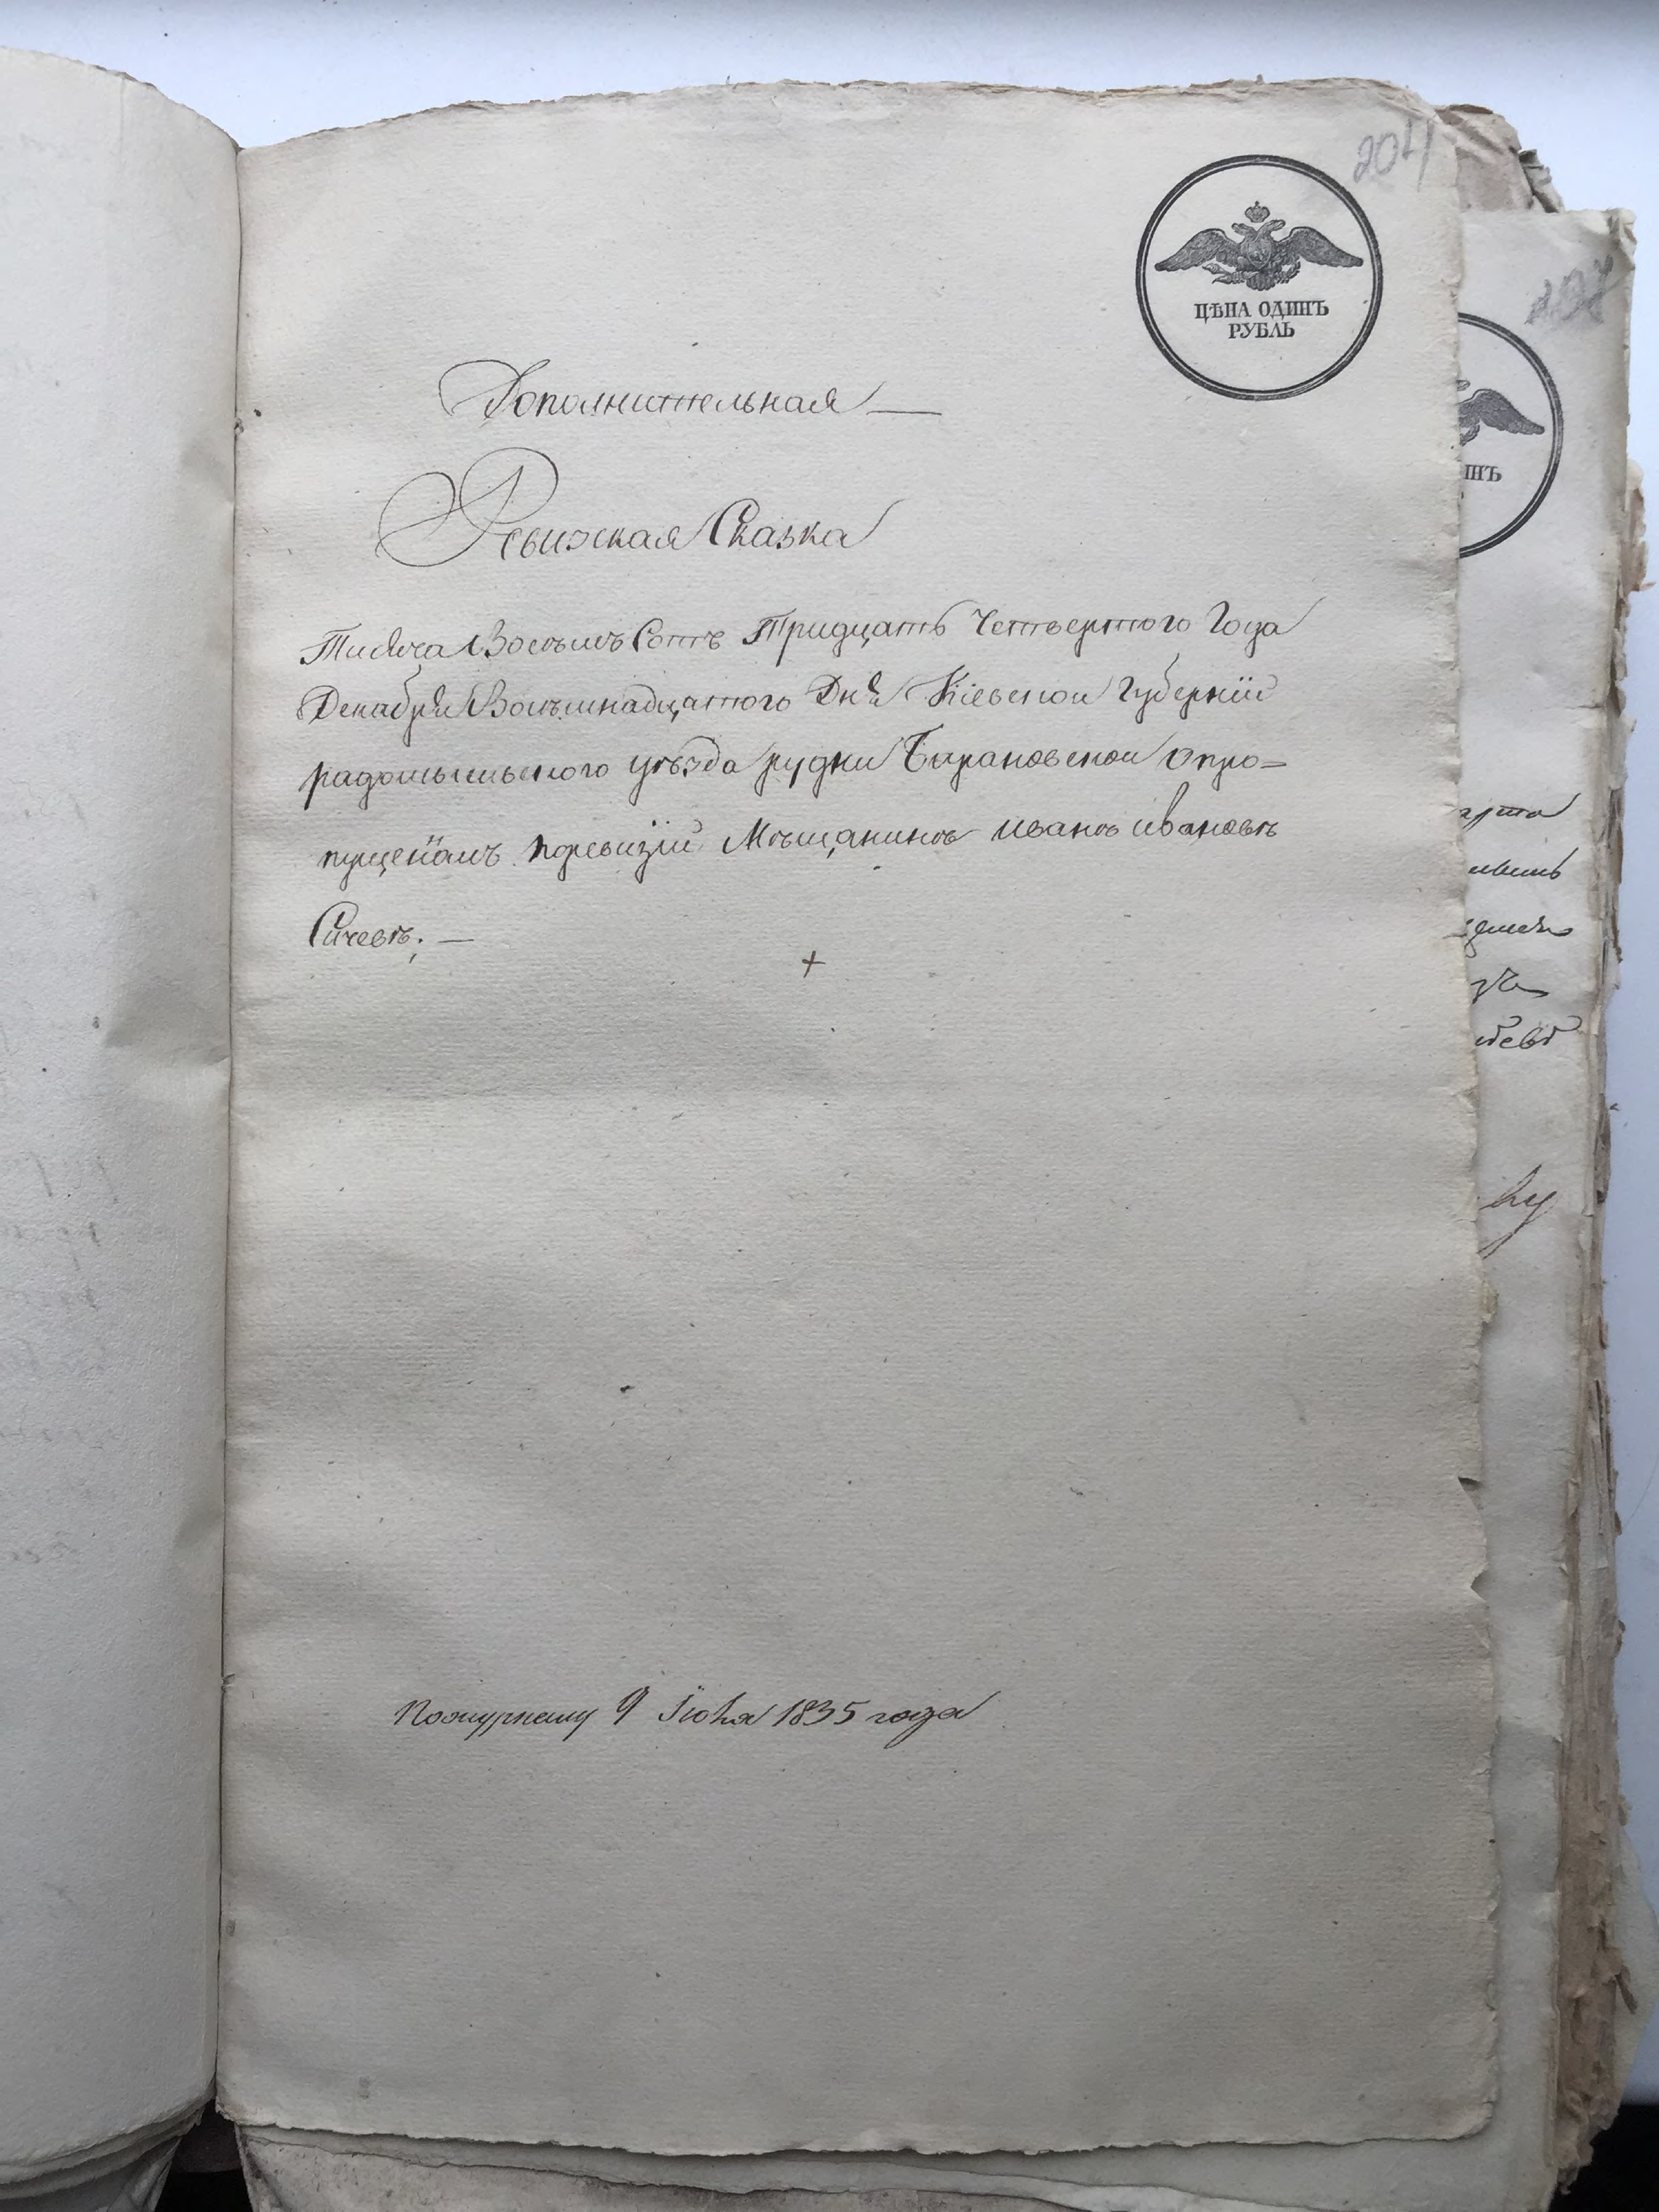 204
ЦѢНА ОДИНЪ
РУБЛЬ
Дополнительная —
Ревизская Сказка
Тисяча Восемъ Сотъ Тридцать Четвертого Года
Декабря Восымнадцатого Дня Кіевской Губерніи
радомысльского уѣзда рудни Барановской опро=
пущеніамъ поревизіи Мѣщанинѣ иванѣ ивановѣ
Сичевѣ; —
Пожурналу 9 Іюня 1835 года
ИНЪ